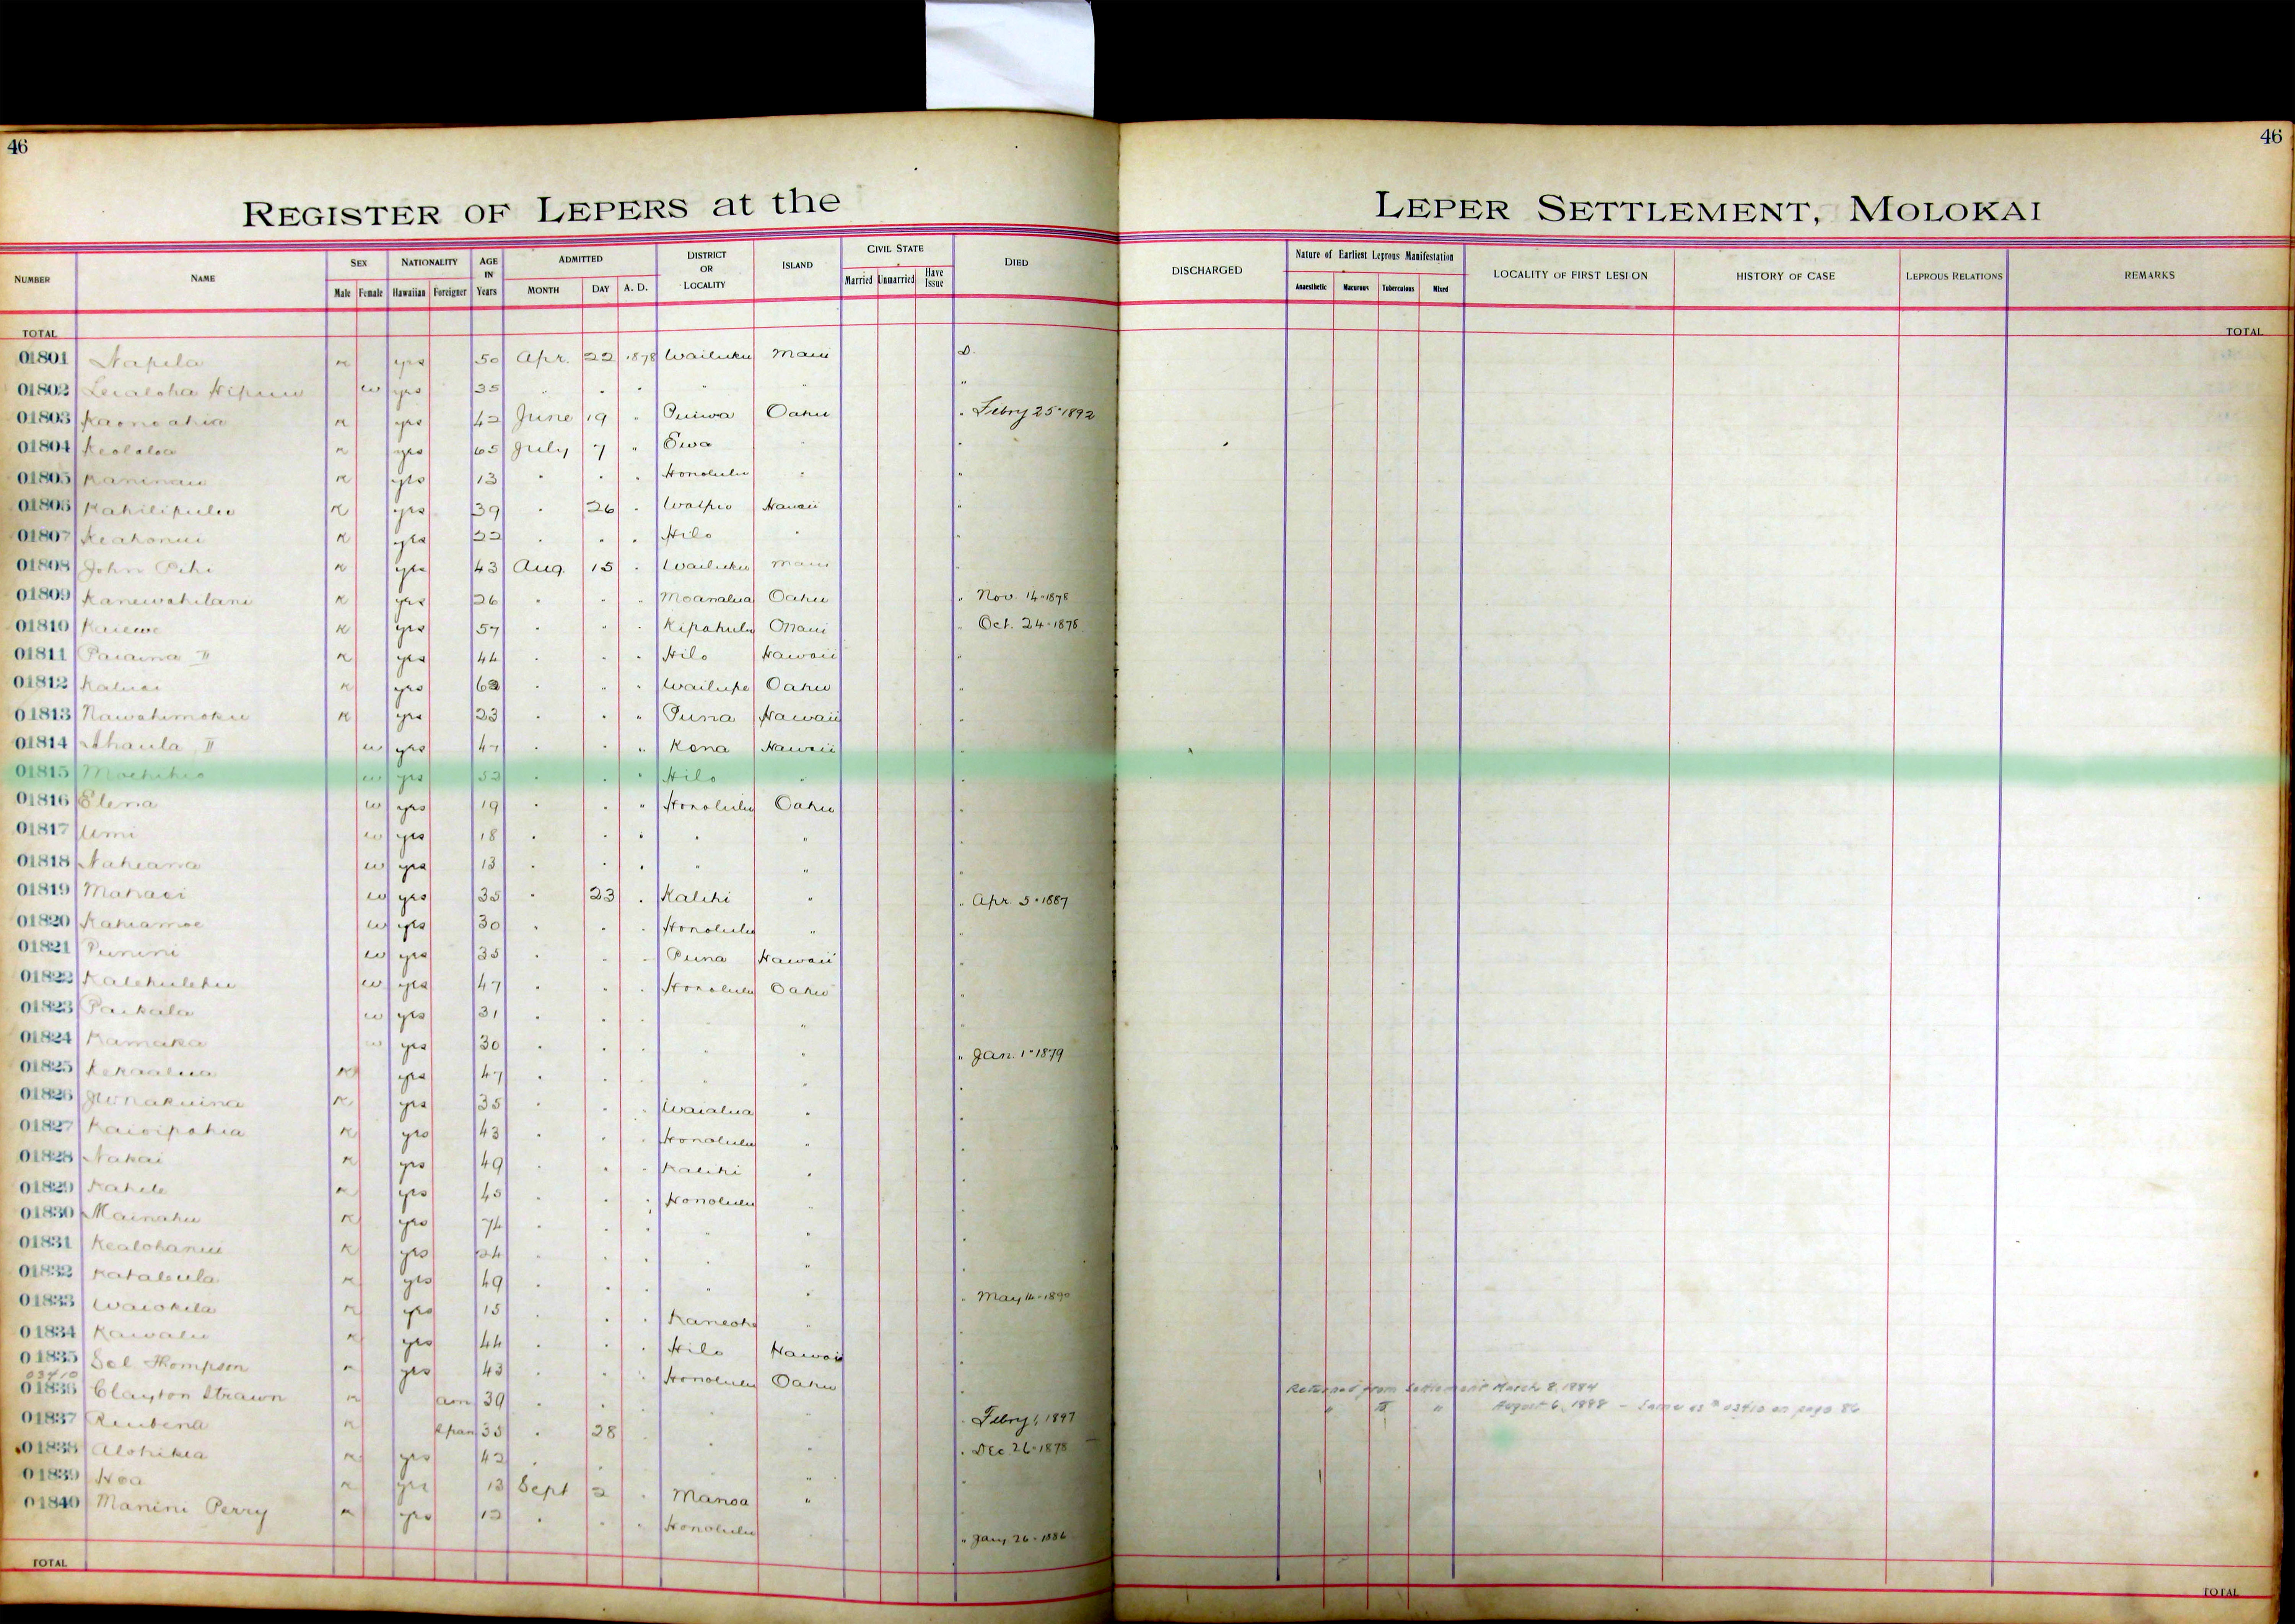 46
46
REGISTER OF LEPERS at the LEPER SETTLEMENT, MOLOKAI
NUMBER NAME SEX Male Female NATIONALITY Hawaiian Foreigner AGE IN Years ADMITTED MONTH DAY A. D. DISTRICT OR LOCALITY ISLAND CIVIL STATE Married Unmarried Have Issue DIED DISCHARGED Nature of Earliest Leprous Manifestation Anaesthetic Macurous Tuberculous Mixed LOCALITY OF FIRST LESION HISTORY OF CASE LEPROUS RELATIONS REMARKS
TOTAL TOTAL
01801 Napela m yes 50 Apr. 22 1878 Wailuku Maui D.
01802 Lewaloha w yes 35 " " " " " "
01803 Kaonoahia m yes 42 June 19 " Puiwa Oahu " Febry 25-1892
01804 Keololoa m yes 65 July 7 " Ewa " "
01805 Kaninau m yes 13 " " " Honolulu " "
01806 Kahilipulu m yes 39 " 26 " Waipio Hawaii "
01807 Keahonui m yes 22 " " " Hilo " "
01808 John m yes 43 Aug. 15 " Wailuku Maui "
01809 Kanewahilani m yes 26 " " " Moanalua Oahu " Nov. 14-1878
01810 Kaiewe m yes 57 " " " Kipahulu Maui " Oct. 24-1878
01811 Paiaina II m yes 44 " " " Hilo Hawaii "
01812 Kaluai m yes " " " Wailupe Oahu "
01813 Nawahimoku m yes 23 " " " Puna Hawaii "
01814 Ahaula II w yes 47 " " " Kona Hawaii "
01815 w yes 52 " " " Hilo " "
01816 Elena w yes 19 " " " Honolulu Oahu "
01817 Umi w yes 18 " " " " " "
01818 Naheana w yes 13 " " " " " "
01819 Mahaei w yes 35 " 23 " Kalihi " " Apr. 5-1887
01820 Kahiamoe w yes 30 " " " Honolulu " "
01821 Punini w yes 35 " " " Puna Hawaii "
01822 Kalehulehu w yes 47 " " " Honolulu Oahu "
01823 Paikala w yes 31 " " " " "
01824 Kamaka w yes 30 " " " " " " Jan. 1-1879
01825 Kekaalua m yes 47 " " " " "
01826 m yes 35 " " " Waialua " "
01827 Kaioipohia m yes 43 " " " Honolulu " "
01828 Nakai m yes 49 " " " Kalihi " "
01829 Kahele m yes 45 " " " Honolulu " "
01830 Mainahu m yes 74 " " " " "
01831 Kealohanui m yes 24 " " " " "
01832 Kahaleula m yes 49 " " " " " " May 14-1890
01833 Waiohila m yes 15 " " Kaneohe " "
01834 Kawalu m yes 44 " " Hilo Hawaii "
01835 Sol Thompson m yes 43 " " Honolulu Oahu "
03410
01836 Clayton Strawn m am 39 " " " " Febry 1, 1897 Returned from Settlement March 8, 1884
" " " August 6, 1888 - Same as # 03410 on page 86
01837 Reubena m Span 35 " 28 " " " Dec 26-1878
01838 Alohikea m yes 42 " " " "
01839 Hoa m yes 13 Sept 2 " Manoa " "
01840 Manini Perry m yes 12 " " " Honolulu " Jany 26-1886
TOTAL TOTAL